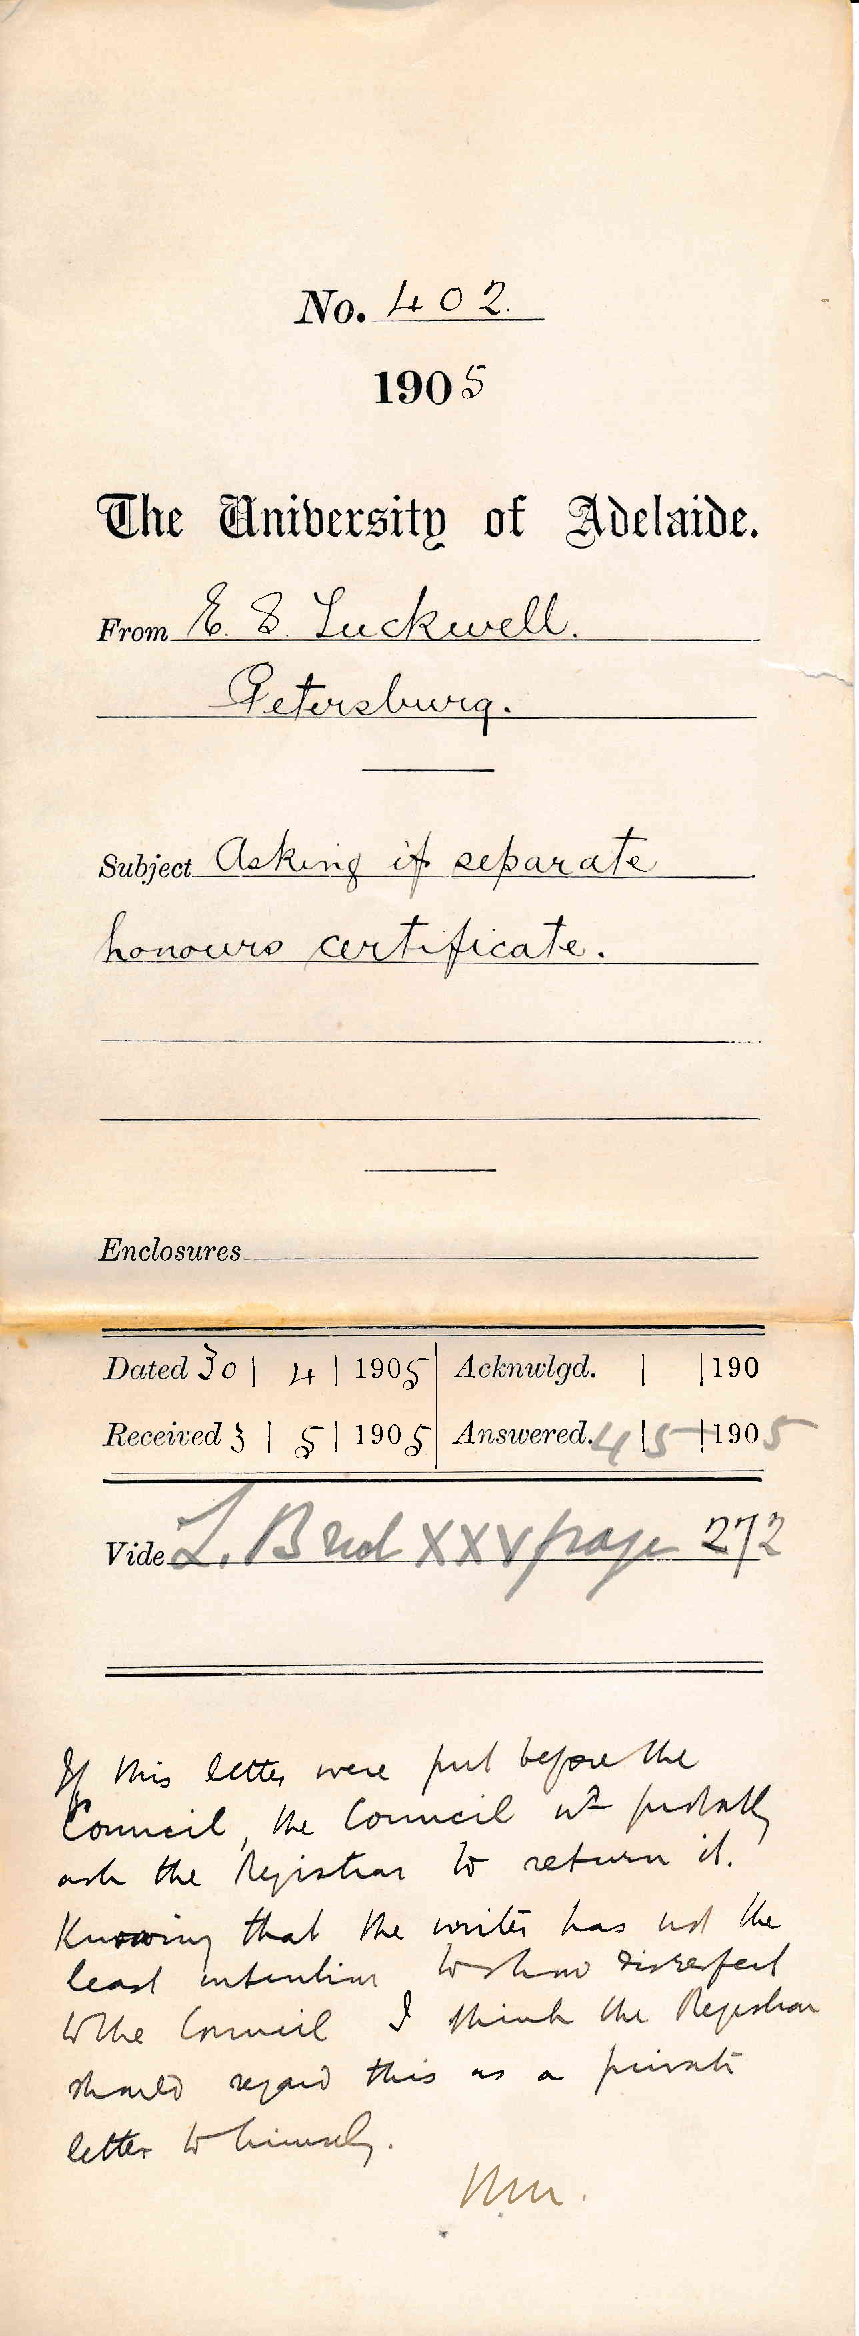 No. 402.
1905
The University of Adelaide.
From E. S. Luckwell.
Petersburg.
Subject Asking if separate
honours certificate.
Enclosures
Dated 30 | 4 | 1905 Acknwlgd. | | 190
Received 3 | 5 | 1905 Answered. 4 | 5 | 1905
Vide L. B red XXV page 272
If this letter were put before the
Council, the Council wd probably
ask the Registrar to return it.
Knowing that the writer has not the
least intention to show disrespect
to the Council I think the Registrar
should regard this as a private
letter to himself.